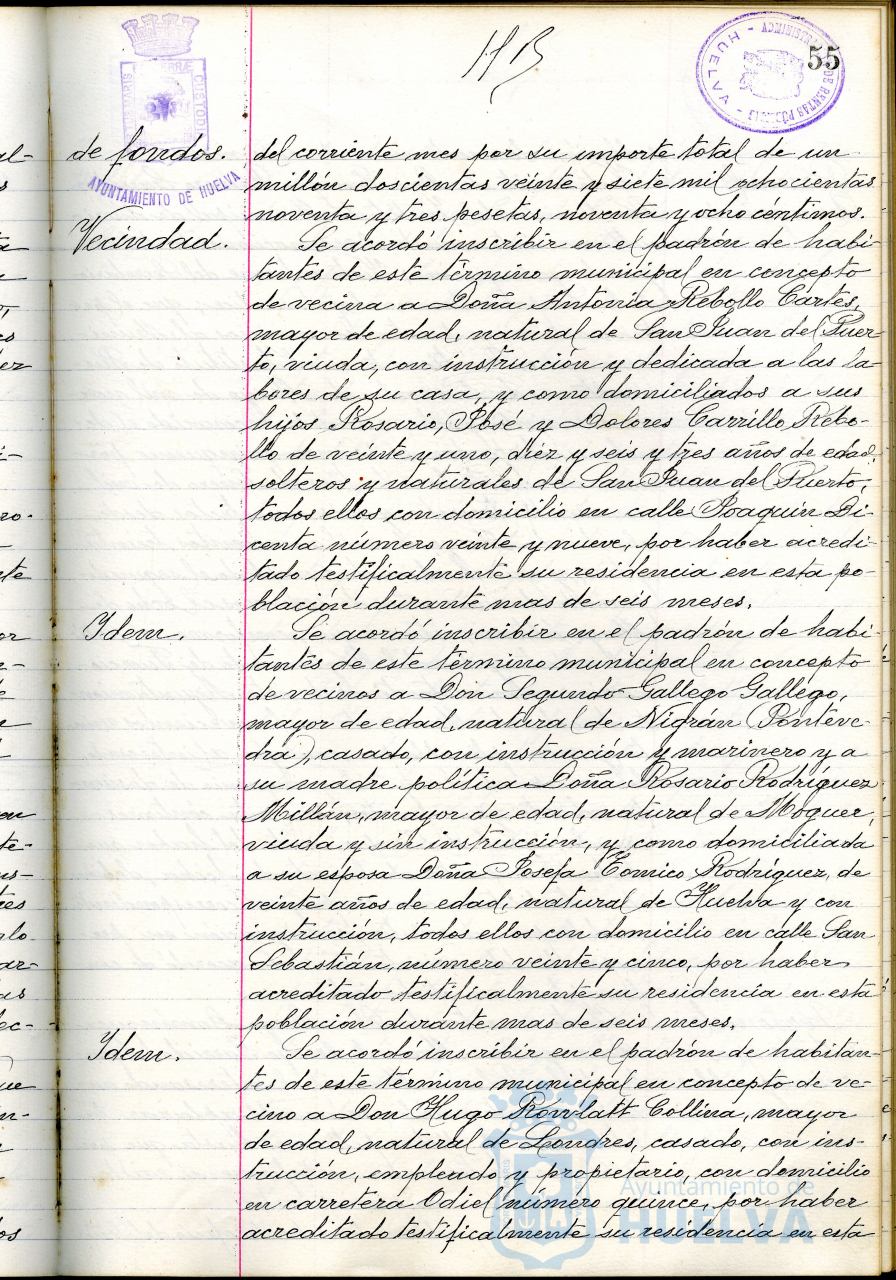 HB
55
AYUNTAMIENTO DE HUELVA
de fondos.
del corriente mes por su importe total de un
millón doscientas veinte y siete mil ochocientas
noventa y tres pesetas, noventa y ocho céntimos.
Vecindad.
Se acordó inscribir en el padrón de habi-
tantes de este término municipal en concepto
de vecina a Doña Antonia Rebollo Cartes,
mayor de edad, natural de San Juan del Puer-
to, viuda, con instrucción y dedicada a las la-
bores de su casa, y como domiciliados a sus
hijos Rosario, José y Dolores Carrillo Rebo-
llo de veinte y uno, diez y seis y tres años de edad,
solteros y naturales de San Juan del Puerto,
todos ellos con domicilio en calle Joaquín Di-
centa número veinte y nueve, por haber acredi-
tado testificalmente su residencia en esta po-
blación durante mas de seis meses.
Idem.
Se acordó inscribir en el padrón de habi-
tantes de este término municipal en concepto
de vecinos a Don Segundo Gallego Gallego,
mayor de edad, natural de Nigrán (Ponteve-
dra), casado, con instrucción y marinero y a
su madre política Doña Rosario Rodríguez
Millán, mayor de edad, natural de Moguer,
viuda y sin instrucción, y como domiciliada
a su esposa Doña Josefa Tomico Rodríguez, de
veinte años de edad, natural de Huelva y con
instrucción, todos ellos con domicilio en calle San
Sebastián, número veinte y cinco, por haber
acreditado testificalmente su residencia en esta
población durante mas de seis meses.
Idem.
Se acordó inscribir en el padrón de habitan-
tes de este término municipal en concepto de ve-
cino a Don Hugo Rowlatt Collina, mayor
de edad, natural de Londres, casado, con ins-
trucción, empleado y propietario, con domicilio
en carretera Odiel número quince, por haber
acreditado testificalmente su residencia en esta
Ayuntamiento de
HUELVA